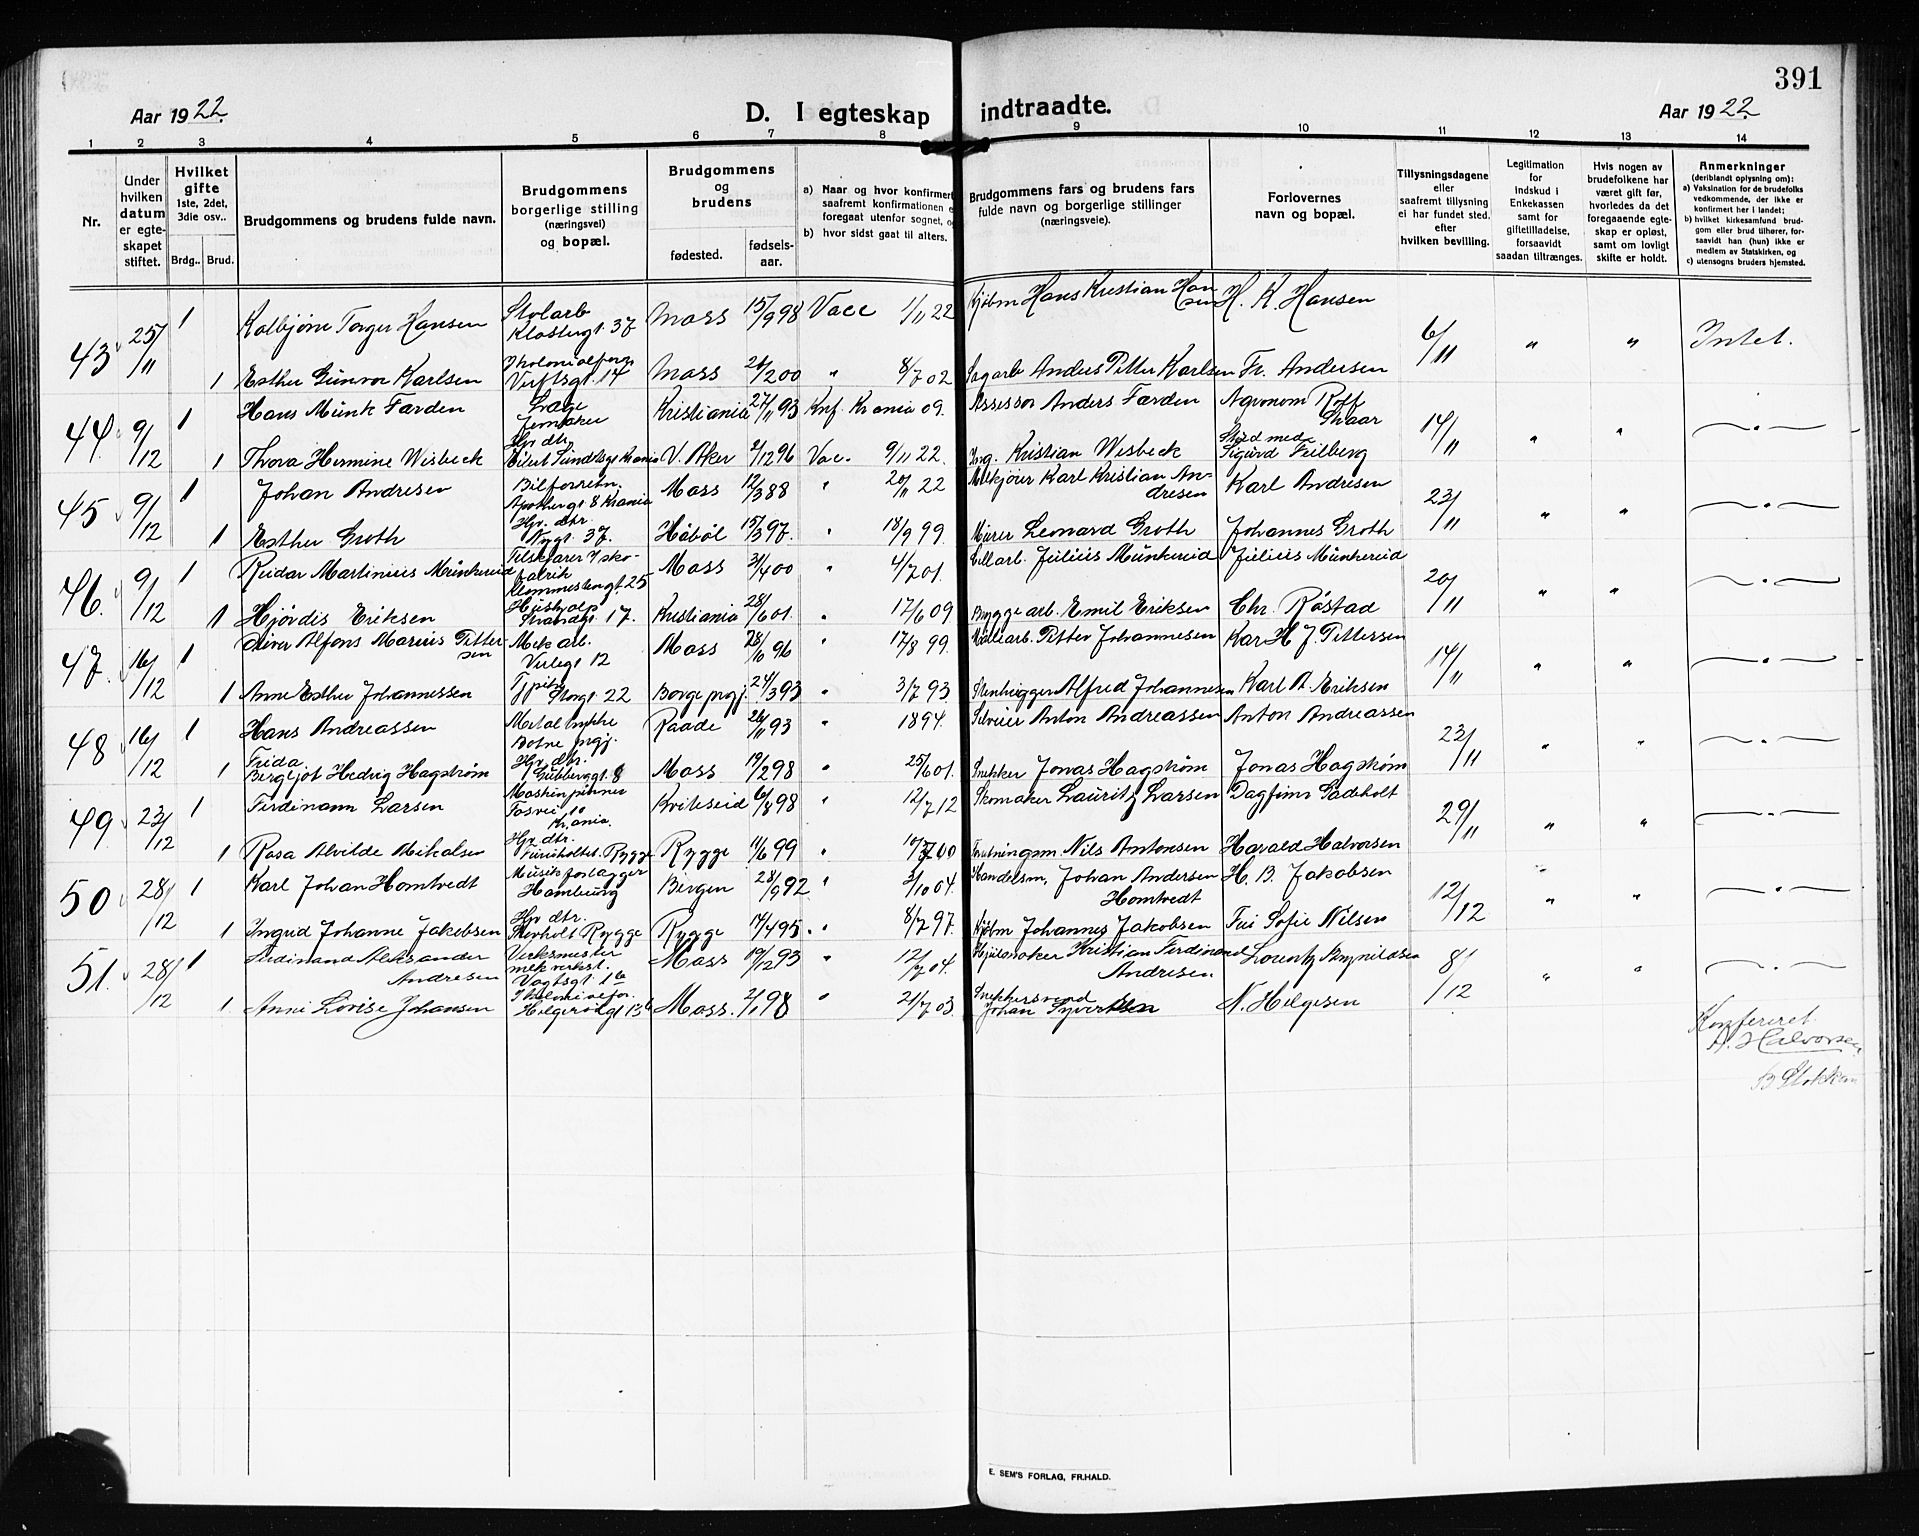 391
Aar 1922.
D. I egteskap indtraadte.
Aar 1922.
1 2 3 4 5 6 7 8 9 10 11 12 13 14
Nr.
Under hvilken datum er egteskapet stiftet.
Hvilket gifte 1ste, 2det, 3die osv..
Brdg.. Brud.
Brudgommens og brudens fulde navn.
Brudgommens borgerlige stilling (næringsvei) og bopæl.
Brudgommens og brudens
fødested. fødsels-aar.
a) Naar og hvor konfirmert saafremt konfirmationen foregaat utenfor sognet,
b) hvor sidst gaat til alters.
Brudgommens fars og brudens fars fulde navn og borgerlige stillinger (næringsveie).
Forlovernes navn og bopæl.
Tillysningsdagene eller saafremt tillysning ei har fundet sted. efter hvilken bevilling.
Legitimation for indskud i Enkekassen samt for giftetilladelse, forsaavidt saadan tiltrænges.
Hvis nogen av brudefolkene har været gift før, hvorledes da det foregaaende egteskap er opløst, samt om lovligt skifte er holdt.
Anmerkninger (deriblandt oplysning om):
a) Vaksination for de brudefolks vedkommende, der ikke er konfirmert her i landet;
b) hvilket kirkesamfund brudgom eller brud tilhører, forsaavidt han (hun) ikke er medlem av Statskirken, og
c) utensogns bruders hjemsted.
43 25/11 1 Kolbjørn Torger Hansen Stolarb Klostergt. 37 Moss 15/9 98 Vacc 1/11 22 Kjøbm Hans Kristian Hansen H. K. Hansen 6/11 " " Intet.
1 Esther Gunvor Karlsen Verftsgt. 14 Moss 26/2 00 " 8/7 02 Sagarb Anders Petter Karlsen Fr. Andersen
44. 9/12 1 Hans Munk Færden Læge Kristiania 27/11 93 Knf. Krania 09. Assessor Anders Færden Agronom Rolf Skaar 14/11 " "
1 Thora Hermine Wisbeck Hgr dtr. Eilert Sundtsgt Krania V. Aker 2/12 96 Vac. 9/11 22. Ing. Kristian Wisbeck Sigurd Feilberg
45 9/12 1 Johan Andresen Apothergt 8 Krania Moss 12/3 88 " 20/11 22 Karl Kristian Andresen Karl Andresen 23/11 " "
1 Esther Groth Hgr. dtr. Nygt. 37. Håbøl 15/3 97. " 18/9 99 Murer Leonard Groth Johannes Groth
46. 9/12 1 Reidar Martinius Munkereid Tilskjærer I skofabrik 25 Moss 3/4 00 " 4/7 01. Julius Munkereid Julius Munkereid 20/11 " "
1 Hjørdis Eriksen Hushjelp Strandgt 17. Kristiania 28/6 01. " 17/6 09 Brygge arb. Emil Eriksen Chr. Røstad
47. 16/12 1 Oliver Alfons Marius Pettersen Mek arb. Verlegt 12 Moss 28/10 96 17/8 99. Petter Johannesen Kar H J Pettersen 14/11 " "
1 Anne Esther Johannessen Storgt. 22 Borge prgj. 24/3 93 " 3/7 93. Stenhugger Alfred Johannesen Karl A. Eriksen
48 16/12 1 Hans Andreassen Botne prgj. Raade 26/11 93 " 1894. Anton Andreassen Anton Andreassen 23/11 " "
1 Frida Bergljot Hedvig Hagstrøm Hgr. dtr. Gubberggt. 8 Moss 19/2 98 " 25/6 01. Snekker Jonas Hagstrøm Jonas Hagstrøm
49. 23/12 1 Ferdinann Larsen Tosvei 10 Kr.ania. Kviteseid 6/8 98 " 12/7 12 Skomaker Lauritz Larsen Dagfinn Gadholt 29/11 " "
1 Rosa Alvilde Mikalsen Hgr dtr. Rygge Rygge 11/6 99 " Nils Antonsen Harald Halvorsen
50 28/12 1 Karl Johan Homtvedt Musikforlægger Hamburg Bergen 28/9 92 " 3/10 04. Handelsm. Johan Andersen Homtvedt H. B. Jakobsen 12/12 " "
1 Ingrid Johanne Jakobsen Hgr dtr. Rygge Rygge 14/4 95 " 8/7 97. Kjøbm Johannes Jakobsen Fru Sofie Nilsen
51. 28/12 1 Ferdinand Aleksander Andresen Verksmester mek verkst. Vogtsgt. 1b Moss 19/12 93 " 12/7 04. Kristian Ferdinand Andresen Lorentz Brynildsen 8/12 " "
1 Anne Lovise Johansen Helgerødgt 13b Moss. 2/1 98 " 21/7 03. Snekkersvend Johan Syvertsen N. Helgesen
Konfereret.
A. Halvorsen
B Stokken
E. SEM'S FORLAG, FR.HALD.